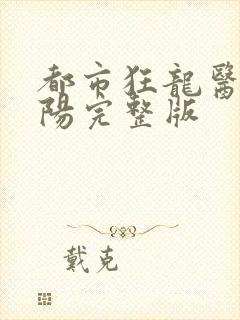 都市狂龍醫
陽完整版
戴克